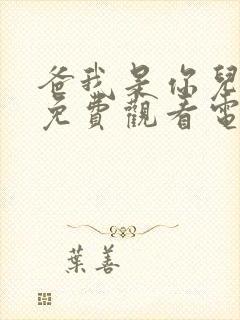 爸我是你兒
免費觀看電
葉善